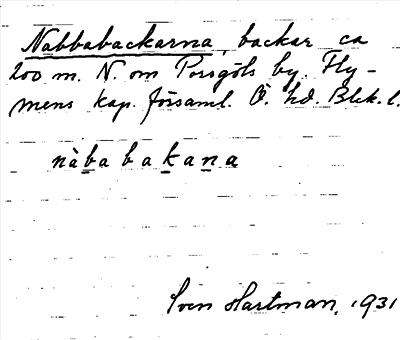 Nabbabackarna, backar ca
200 m. N. om Porsgöls by. Fly-
mens kap. församl. Ö. hd. Blek. l.
nàbabakana
Sven Hartman, 1931